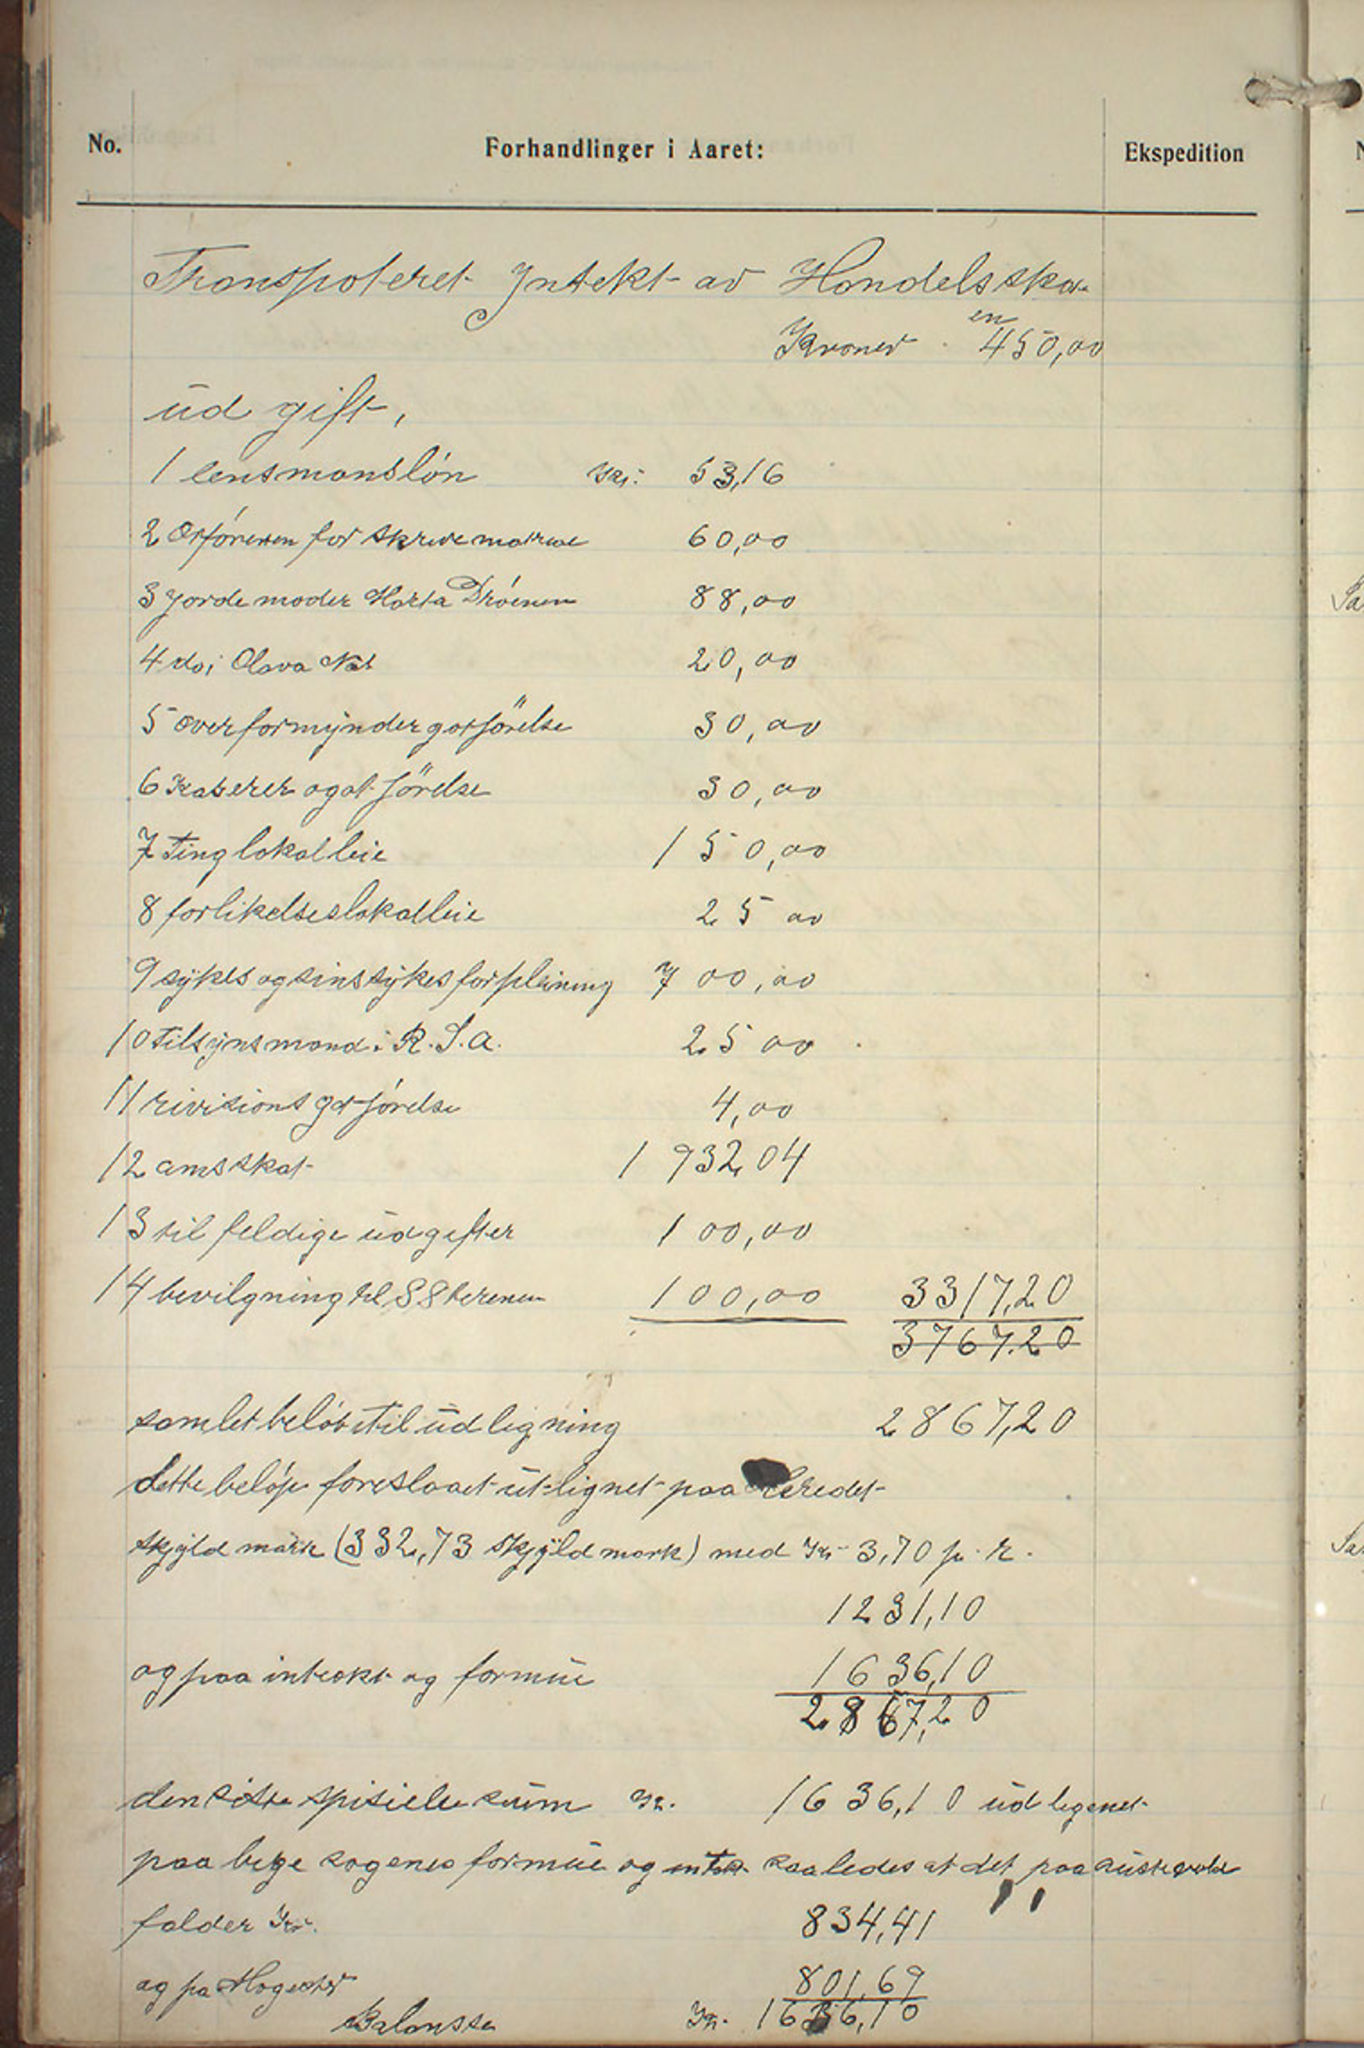 No. Forhandlinger i Aaret: Ekspedition
Transpoteret Intekt av Handelsska
en
Kroner 450,00
ud gift,
1 lensmanslön Kr: 53,16
2 Orföreren for skrive 60,00
3 Jorde moder Marta 88,00
4 do; Olava 20,00
5 overformynder gotjörelse 30,00
6 Kaserer ogot jörelse 30,00
7 Ting lokalleie 150,00
8 forlikelseslokalleie 25 00
9 sykes og sinssykes forpleining 700,00
10 tilsynsmand i R.S.A. 25 00
11 rivisions gotjörelse 4,00
12 amsskat 1932 04
13 til feldige udgefter 100,00
14 bevilgning til 100,00 3317,20
3767.20
samlet belöb til udligning 2867,20
dette belöp foreslaaet utlignet paa
skyld mark (332,73 skyld mark) med Kr 3,70 p. r.
1231,10
og paa intækt og formue 1636,10
2867,20
den siste spisielle sum Kr. 1636,10 udlignet
paa bege sogenes formue og intekt saaledes at det paa
falder Kr. 834,41
og pa 801,69
Balansse Kr. 1636,10